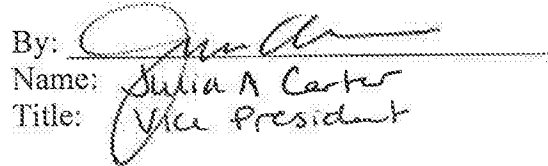 By:
Name: Julia A Carter
Title: Vice President